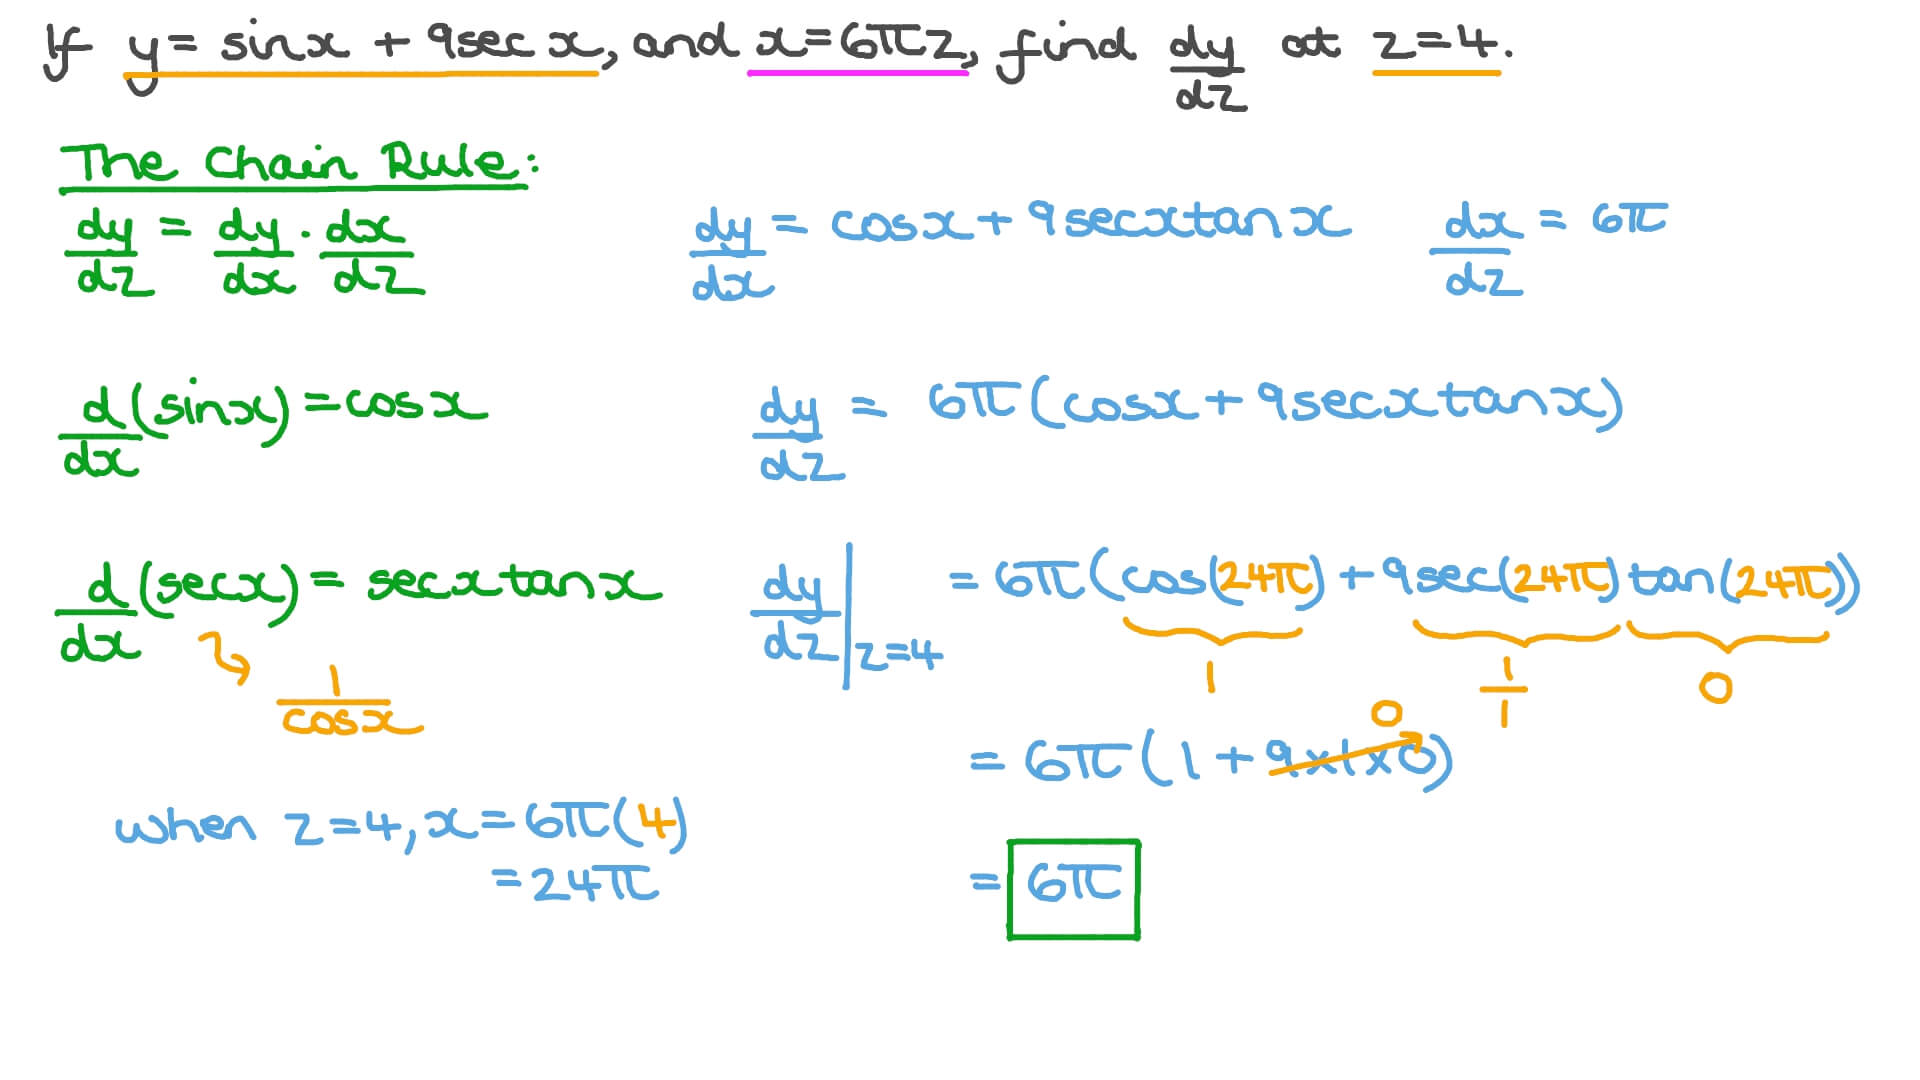 If y = sin x + 9 sec x, and x = 6πz, find dy/dz at z = 4.
The Chain Rule:
dy/dz = dy/dx · dx/dz
dy/dx = cos x + 9 sec x tan x
dx/dz = 6π
d/dx (sin x) = cos x
dy/dz = 6π(cos x + 9 sec x tan x)
d/dx (sec x) = sec x tan x
1/cos x
dy/dz | z=4 = 6π(cos(24π) + 9 sec(24π) tan(24π))
1 1/1 0
0
= 6π(1 + 9×1×0)
when z = 4, x = 6π(4)
= 24π
= 6π